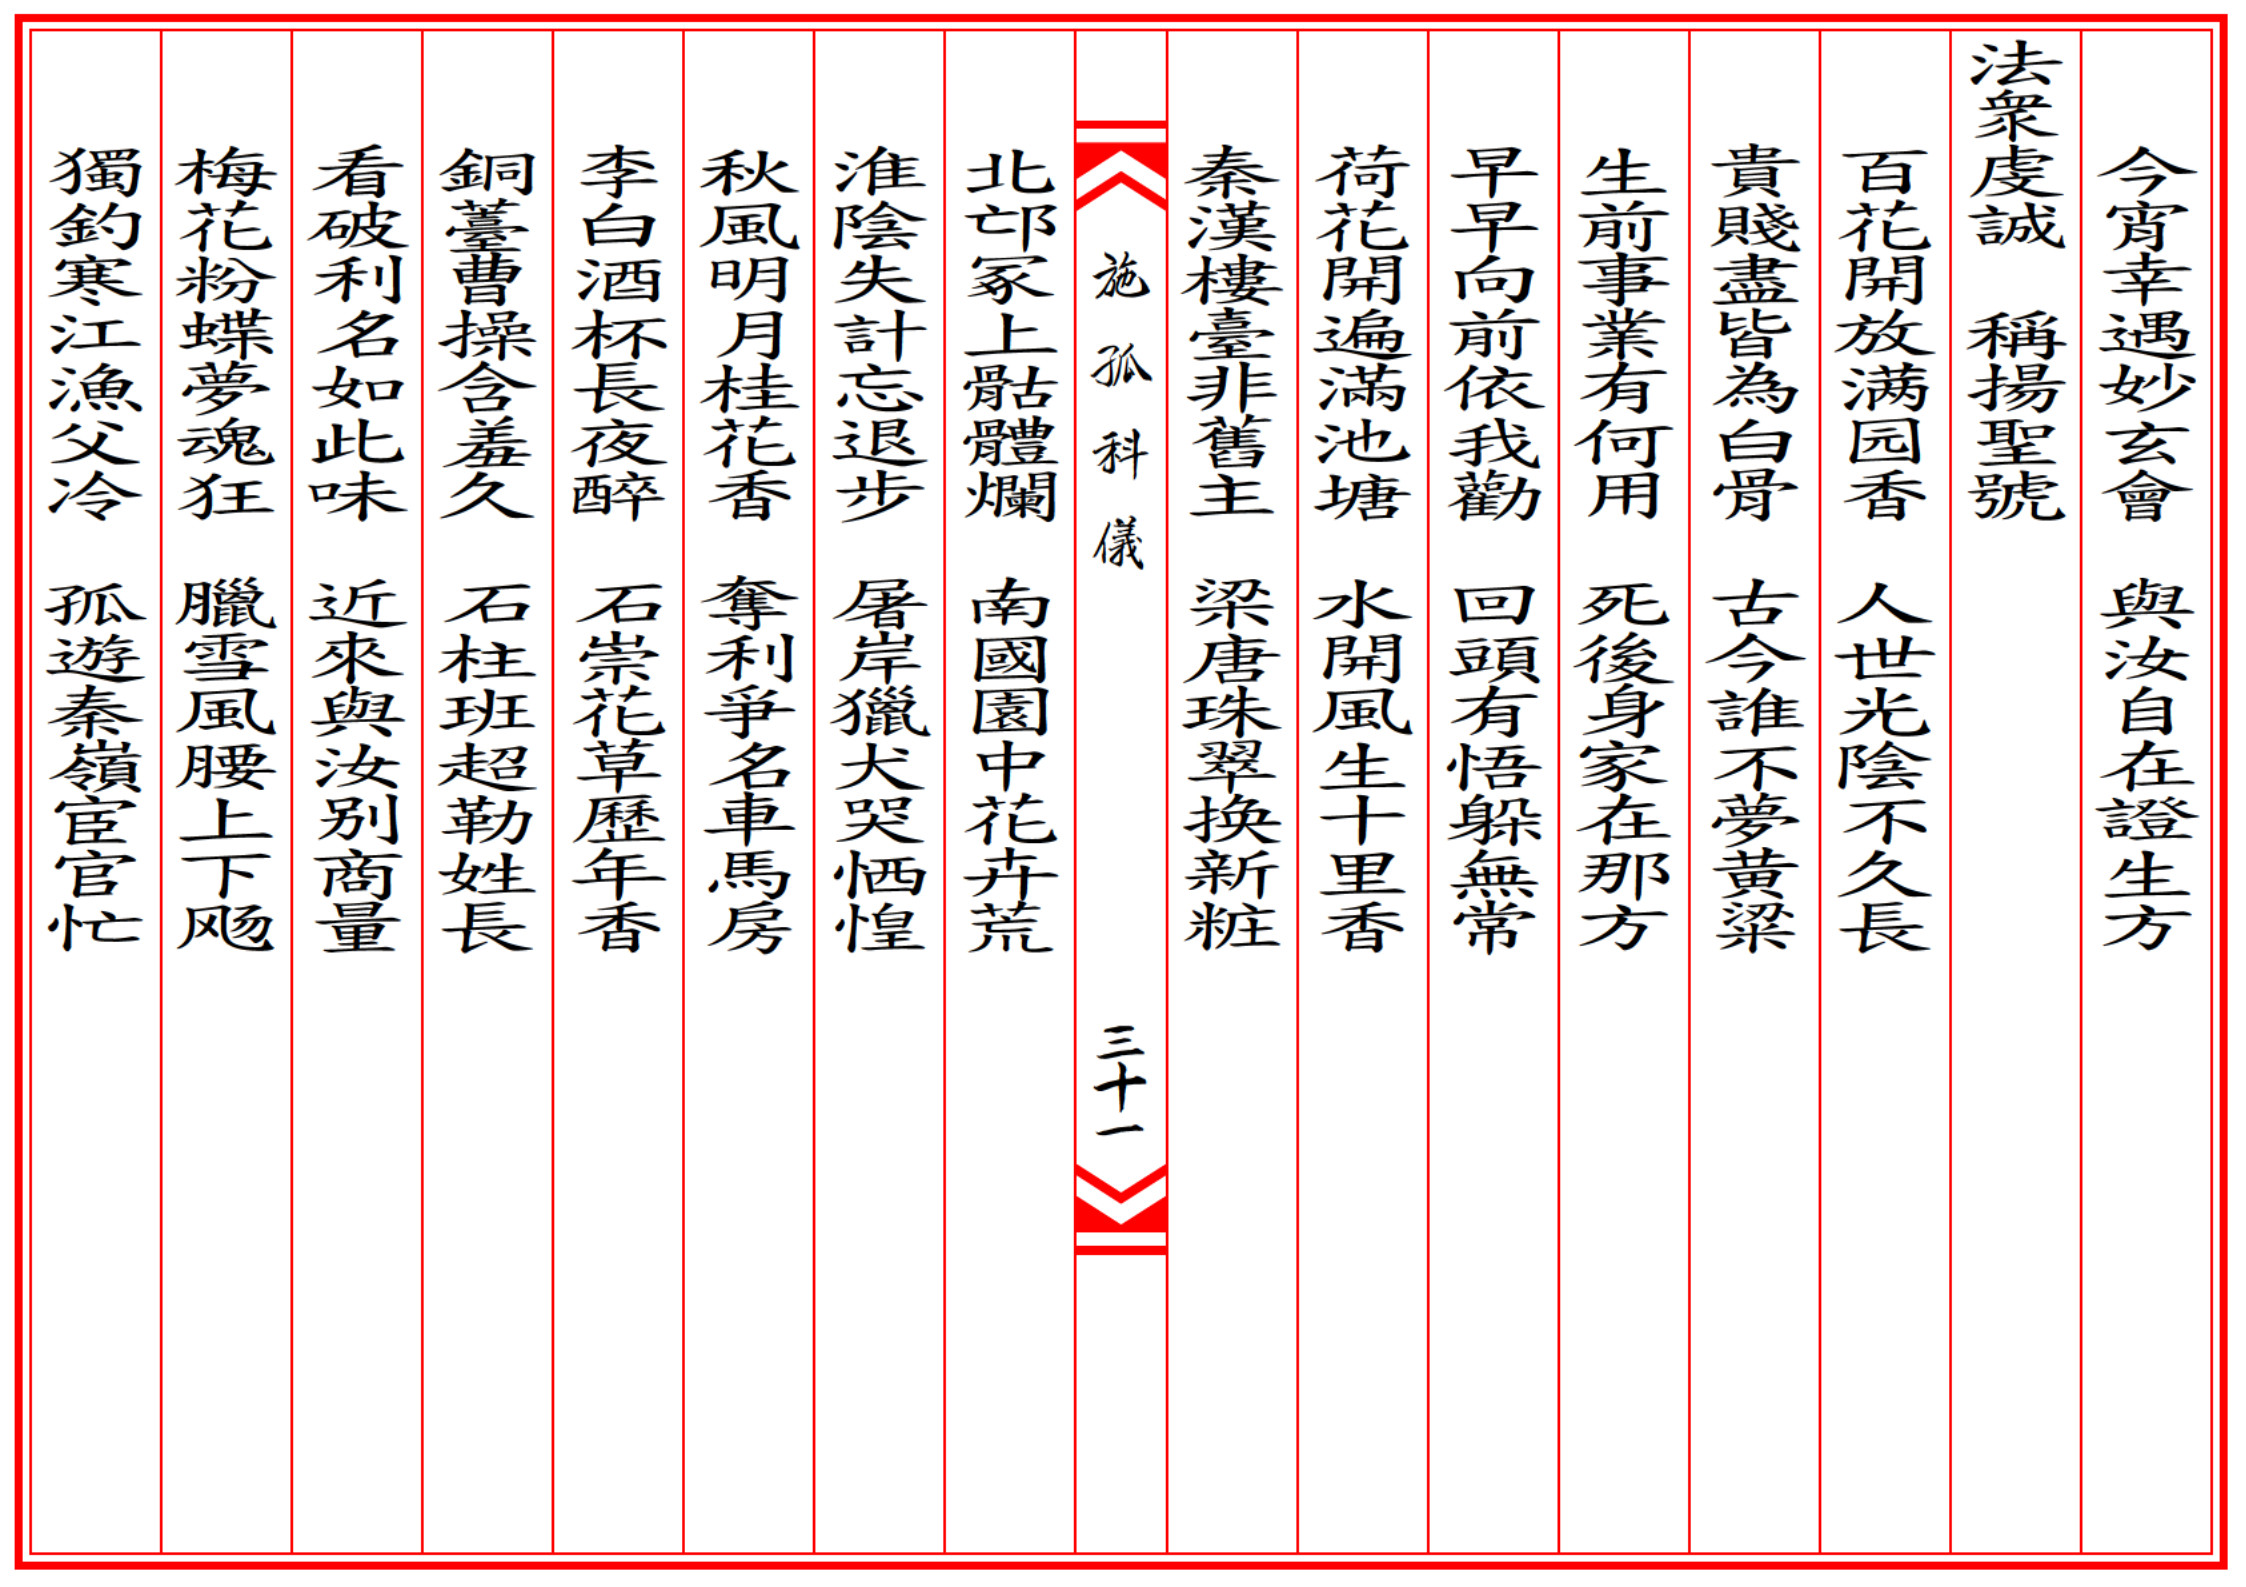 今宵幸遇妙玄會　與汝自在證生方
法衆虔誠　稱揚聖號
百花開放满园香　人世光陰不久長
貴賤盡皆為白骨　古今誰不夢黄粱
生前事業有何用　死後身家在那方
早早向前依我勸　回頭有悟躲無常
荷花開遍滿池塘　水開風生十里香
秦漢樓臺非舊主　梁唐珠翠换新粧
施孤科儀
三十一
北邙冢上骷體爛　南國園中花卉荒
淮陰失計忘退步　屠岸獵犬哭恓惶
秋風明月桂花香　奪利爭名車馬房
李白酒杯長夜醉　石崇花草歷年香
銅薹曹操含羞久　石柱班超勒姓長
看破利名如此味　近來與汝别商量
梅花粉蝶夢魂狂　臘雪風腰上下飏
獨釣寒江漁父冷　孤遊秦嶺宦官忙